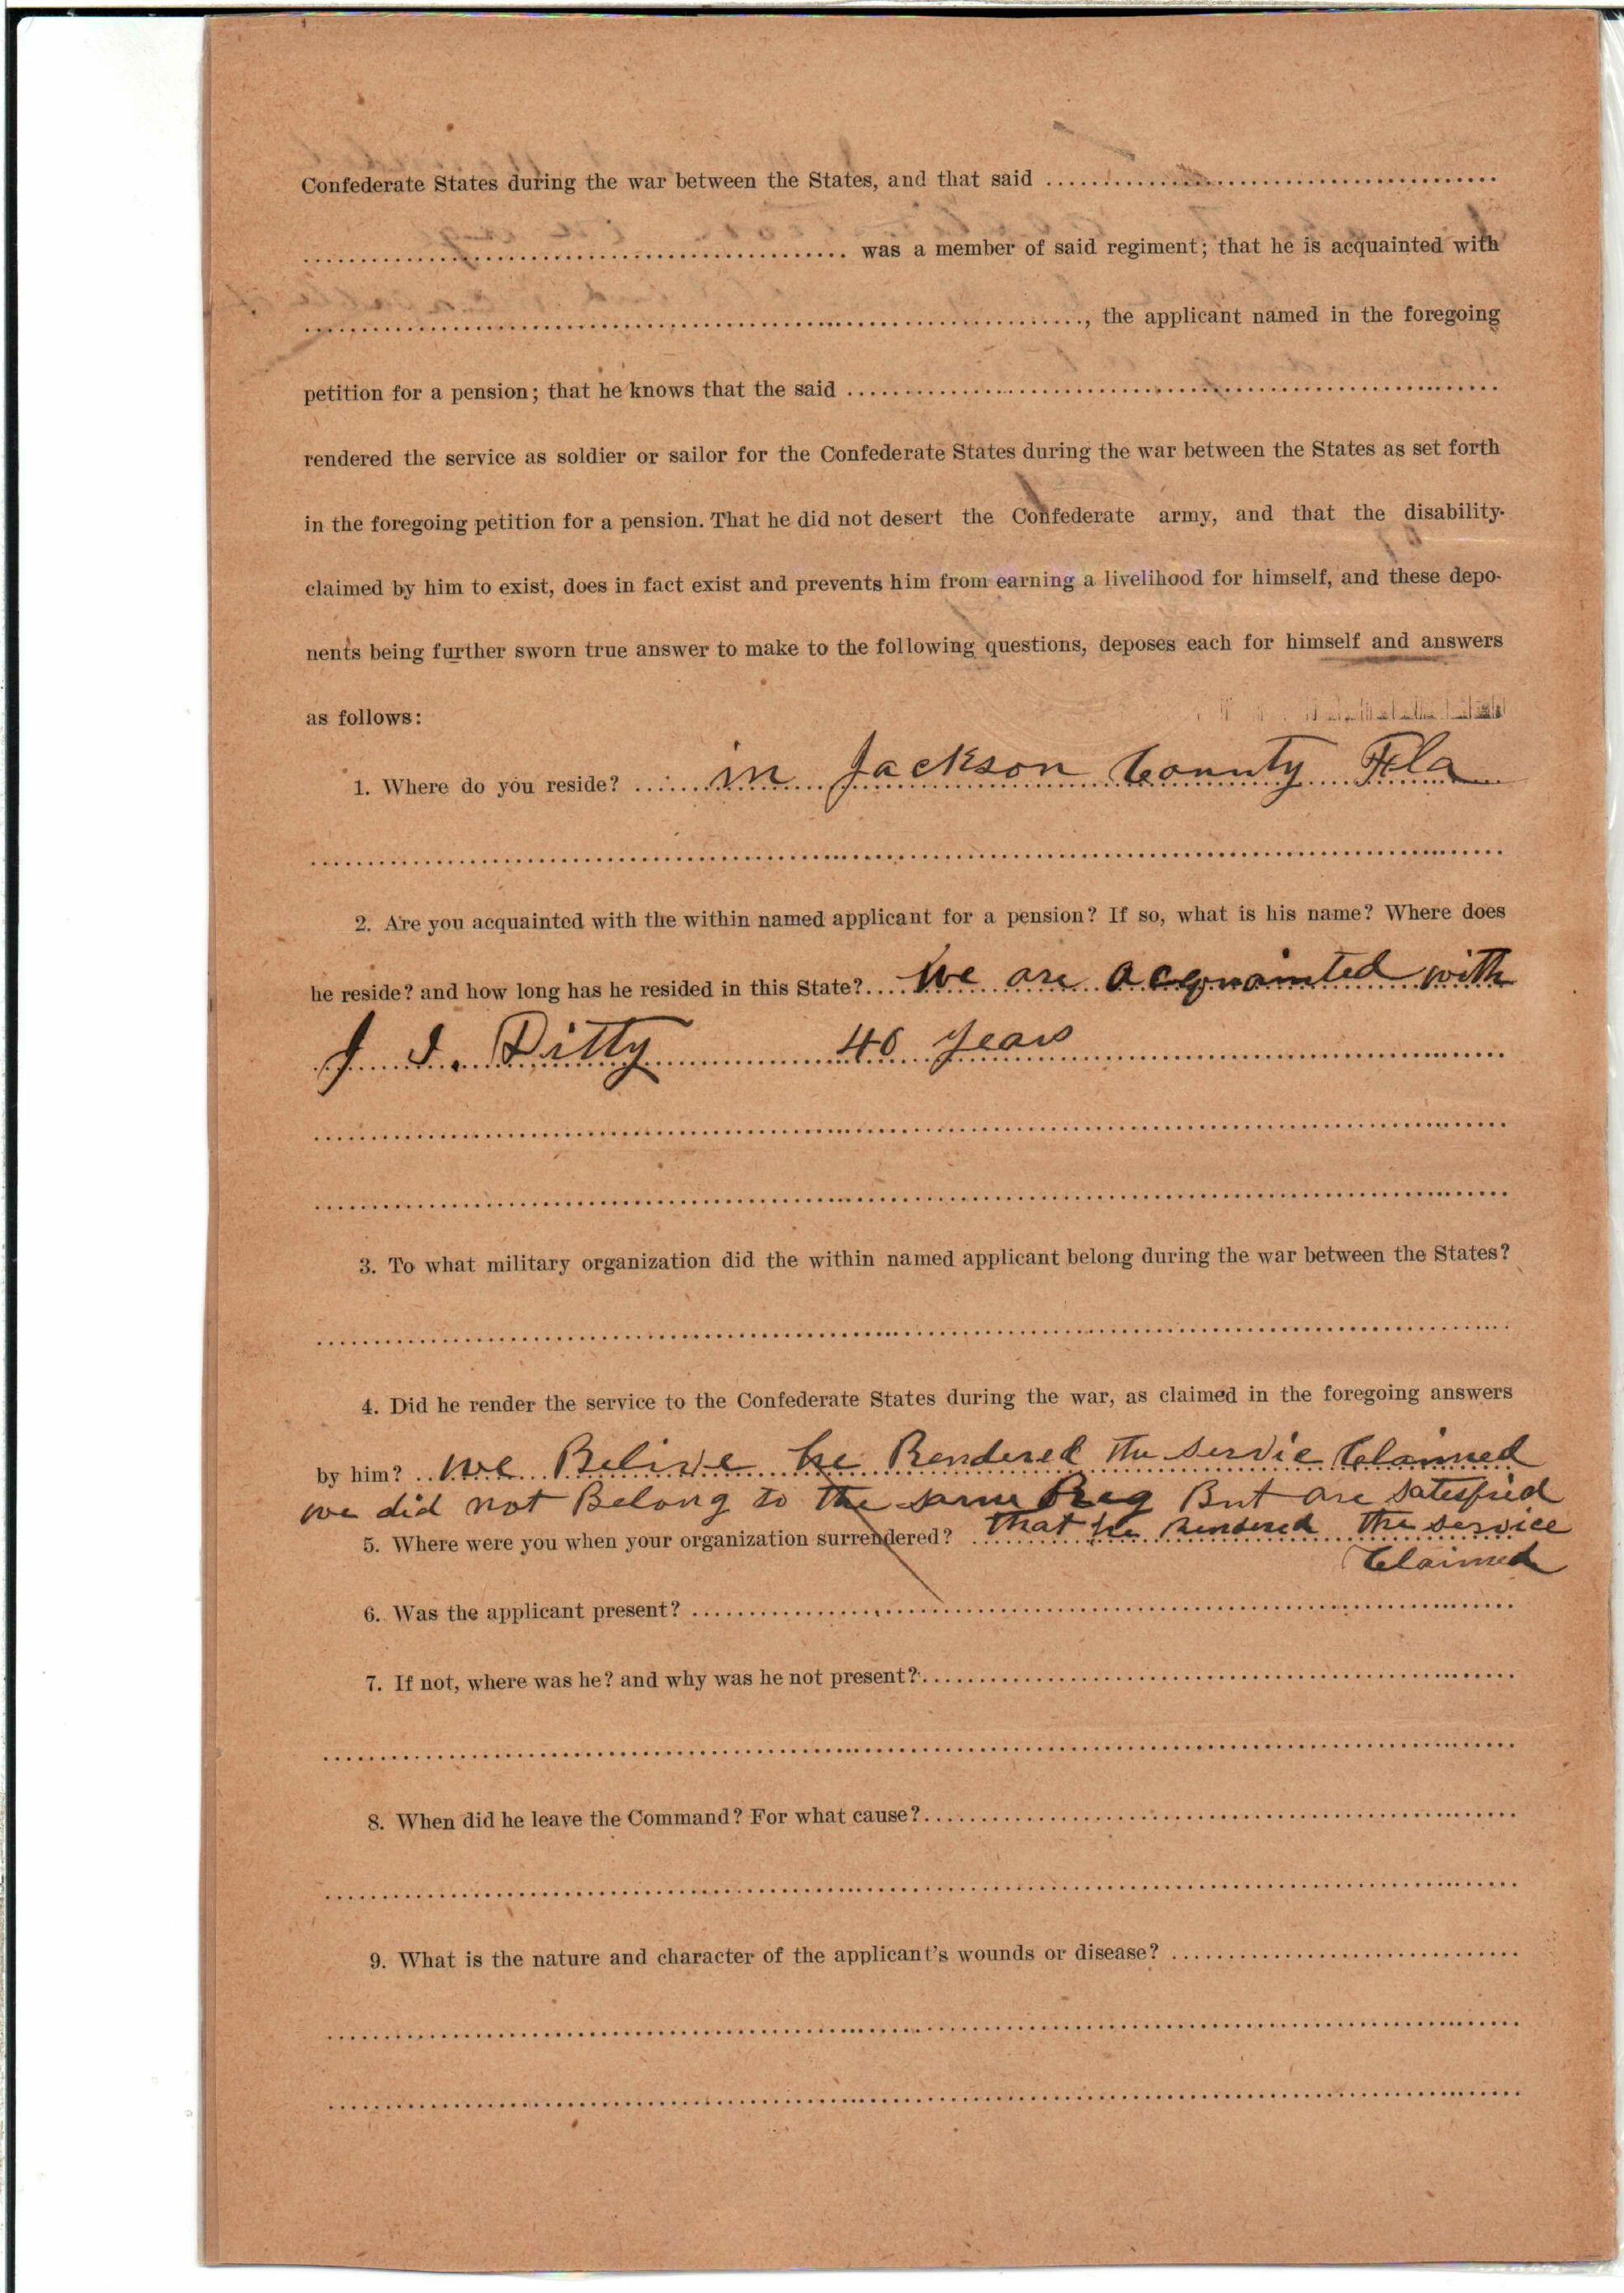 Confederate States during the war between the States, and that said
was a member of said regiment; that he is acquainted with
, the applicant named in the foregoing
petition for a pension; that he knows that the said
rendered the service as soldier or sailor for the Confederate States during the war between the States as set forth
in the foregoing petition for a pension. That he did not desert the Confederate army, and that the disability
claimed by him to exist, does in fact exist and prevents him from earning a livelihood for himself, and these depo-
nents being further sworn true answer to make to the following questions, deposes each for himself and answers
as follows:
1. Where do you reside? in Jackson County Fla
2. Are you acquainted with the within named applicant for a pension? If so, what is his name? Where does
he reside? and how long has he resided in this State? We are acquainted with
J. J. Pitty 40 years
3. To what military organization did the within named applicant belong during the war between the States?
4. Did he render the service to the Confederate States during the war, as claimed in the foregoing answers
by him? We Belive he Rendered the servie Claimed
we did not Belong to the same Reg But are satesfied
5. Where were you when your organization surrendered? that he rendered the service
Claimed
6. Was the applicant present?
7. If not, where was he? and why was he not present?
8. When did he leave the Command? For what cause?
9. What is the nature and character of the applicant's wounds or disease?